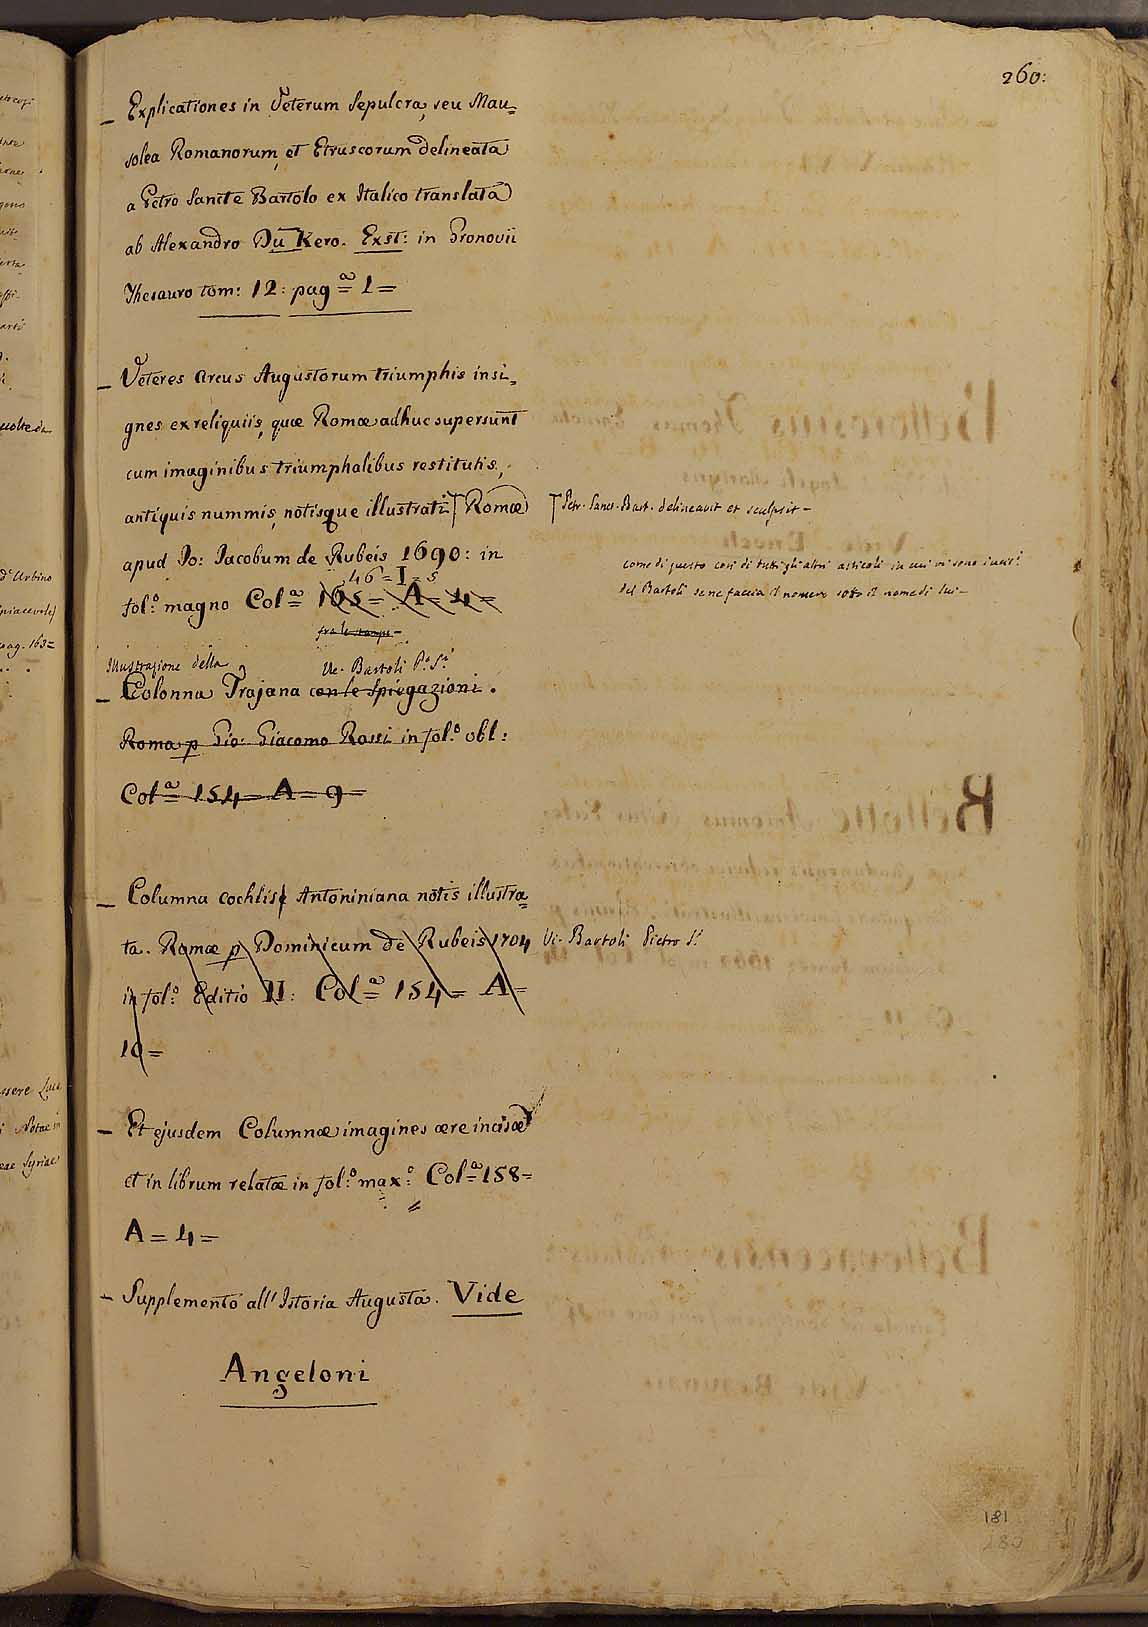 260:
_ Explicationes in Veterum Sepulcra, seu Mau=
solea Romanorum, et Etruscorum delineata
a Petro Sancte Bartolo ex Italico translata
ab Alexandro Du Kero. Exst: in Gronovii
Thesauro tom: 12: pag.ª 1=
_ Veteres Arcus Augustorum triumphis insi=
gnes ex reliquiis, quæ Romæ adhuc supersunt
cum imaginibus triumphalibus restitutis,
antiquis nummis, notisque illustrati Romæ
Petr. Sanct. Bart. delineavit et sculpsit -
apud Jo: Jacobum de Rubeis 1690: in
46 = I = 5
fol:º magno Colª 165 = A = 4 =
come di questo così di tutti gli altri articoli in cui vi sono
del Bartoli se ne faccia il nome di lui -
fra le stampe -
Illustrazione della Ve. Bartoli P.º S.
_ Colonna Trajana con le Spiegazioni.
Roma p Gio: Giacomo Rossi in fol:º obl:
Colª 154 = A = 9 =
_ Columna cochlis Antoniniana notis illustra=
ta. Romæ p Dominicum de Rubeis 1704
Vi. Bartoli Pietro S.
in fol:º Editio II: Colª 154 = A =
10 =
_ Et ejusdem Columnæ imagines ære incisæ
et in librum relatæ in fol:º max:º Colª 158 =
A = 4 =
- Supplemento all' Istoria Augusta. Vide
Angeloni
181
180